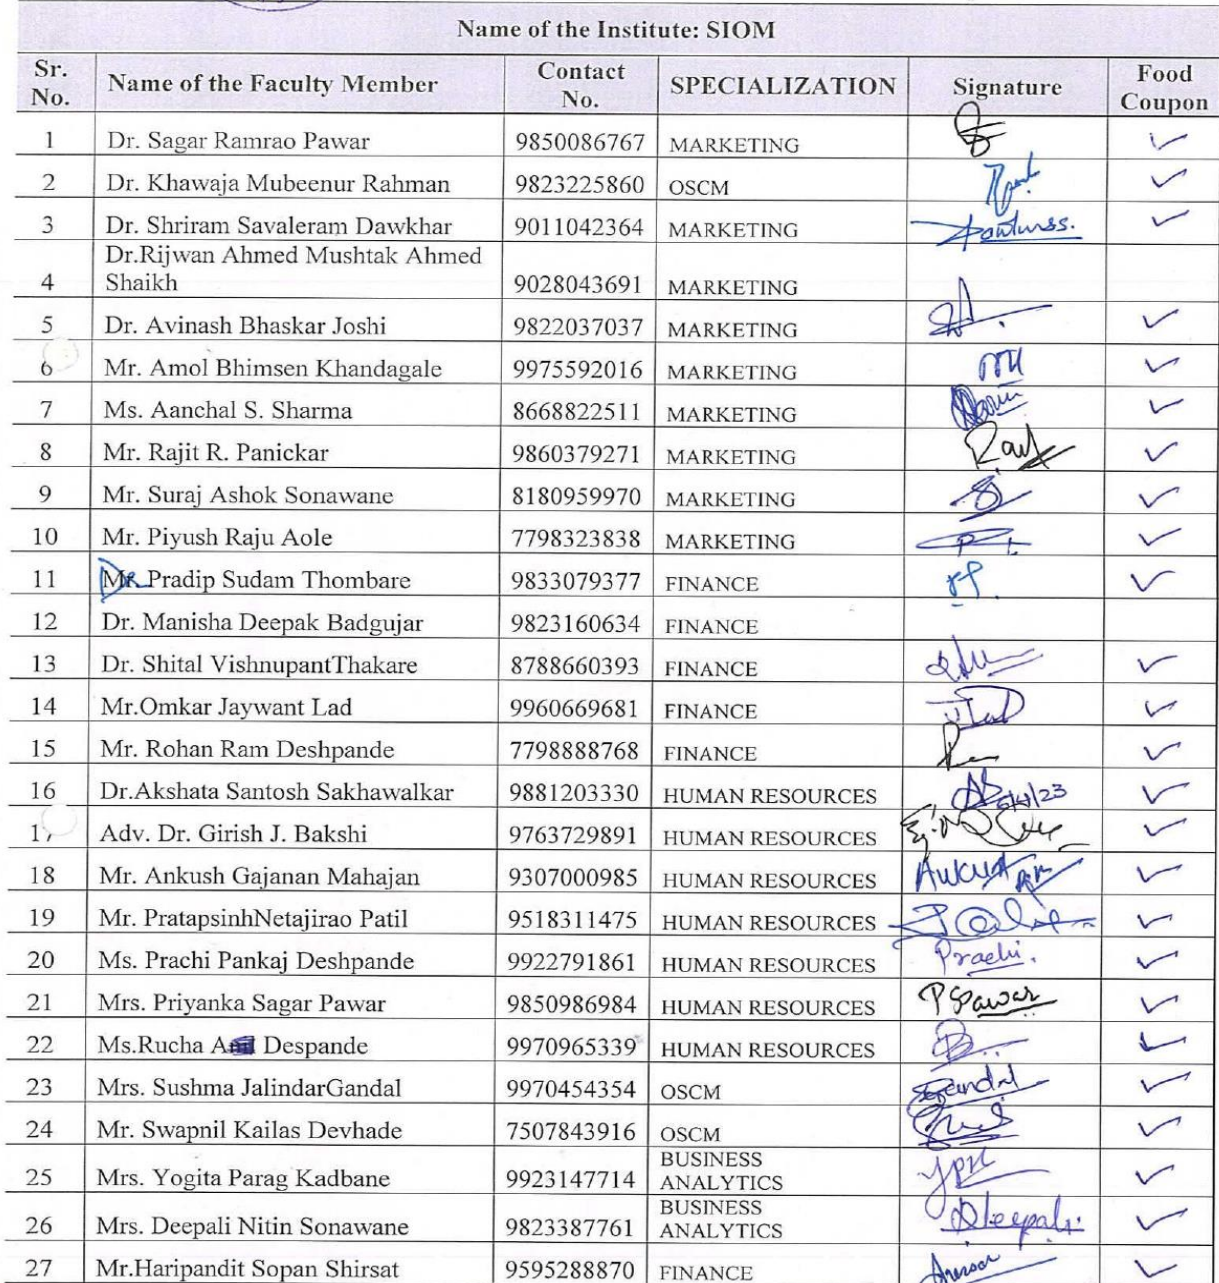 Name of the Institute: SIOM
Sr. No. Name of the Faculty Member Contact No. SPECIALIZATION Signature Food Coupon
1 Dr. Sagar Ramrao Pawar 9850086767 MARKETING
2 Dr. Khawaja Mubeenur Rahman 9823225860 OSCM
3 Dr. Shriram Savaleram Dawkhar 9011042364 MARKETING
Dr.Rijwan Ahmed Mushtak Ahmed
4 Shaikh 9028043691 MARKETING
5 Dr. Avinash Bhaskar Joshi 9822037037 MARKETING
6 Mr. Amol Bhimsen Khandagale 9975592016 MARKETING
7 Ms. Aanchal S. Sharma 8668822511 MARKETING
8 Mr. Rajit R. Panickar 9860379271 MARKETING
9 Mr. Suraj Ashok Sonawane 8180959970 MARKETING
10 Mr. Piyush Raju Aole 7798323838 MARKETING
11 Dr. Pradip Sudam Thombare 9833079377 FINANCE
12 Dr. Manisha Deepak Badgujar 9823160634 FINANCE
13 Dr. Shital VishnupantThakare 8788660393 FINANCE
14 Mr.Omkar Jaywant Lad 9960669681 FINANCE
15 Mr. Rohan Ram Deshpande 7798888768 FINANCE
16 Dr.Akshata Santosh Sakhawalkar 9881203330 HUMAN RESOURCES
17 Adv. Dr. Girish J. Bakshi 9763729891 HUMAN RESOURCES
18 Mr. Ankush Gajanan Mahajan 9307000985 HUMAN RESOURCES
19 Mr. PratapsinhNetajirao Patil 9518311475 HUMAN RESOURCES
20 Ms. Prachi Pankaj Deshpande 9922791861 HUMAN RESOURCES Prachi.
21 Mrs. Priyanka Sagar Pawar 9850986984 HUMAN RESOURCES PSPawar
22 Ms.Rucha Despande 9970965339 HUMAN RESOURCES
23 Mrs. Sushma JalindarGandal 9970454354 OSCM
24 Mr. Swapnil Kailas Devhade 7507843916 OSCM
25 Mrs. Yogita Parag Kadbane 9923147714 BUSINESS ANALYTICS
26 Mrs. Deepali Nitin Sonawane 9823387761 BUSINESS ANALYTICS Deepali
27 Mr.Haripandit Sopan Shirsat 9595288870 FINANCE